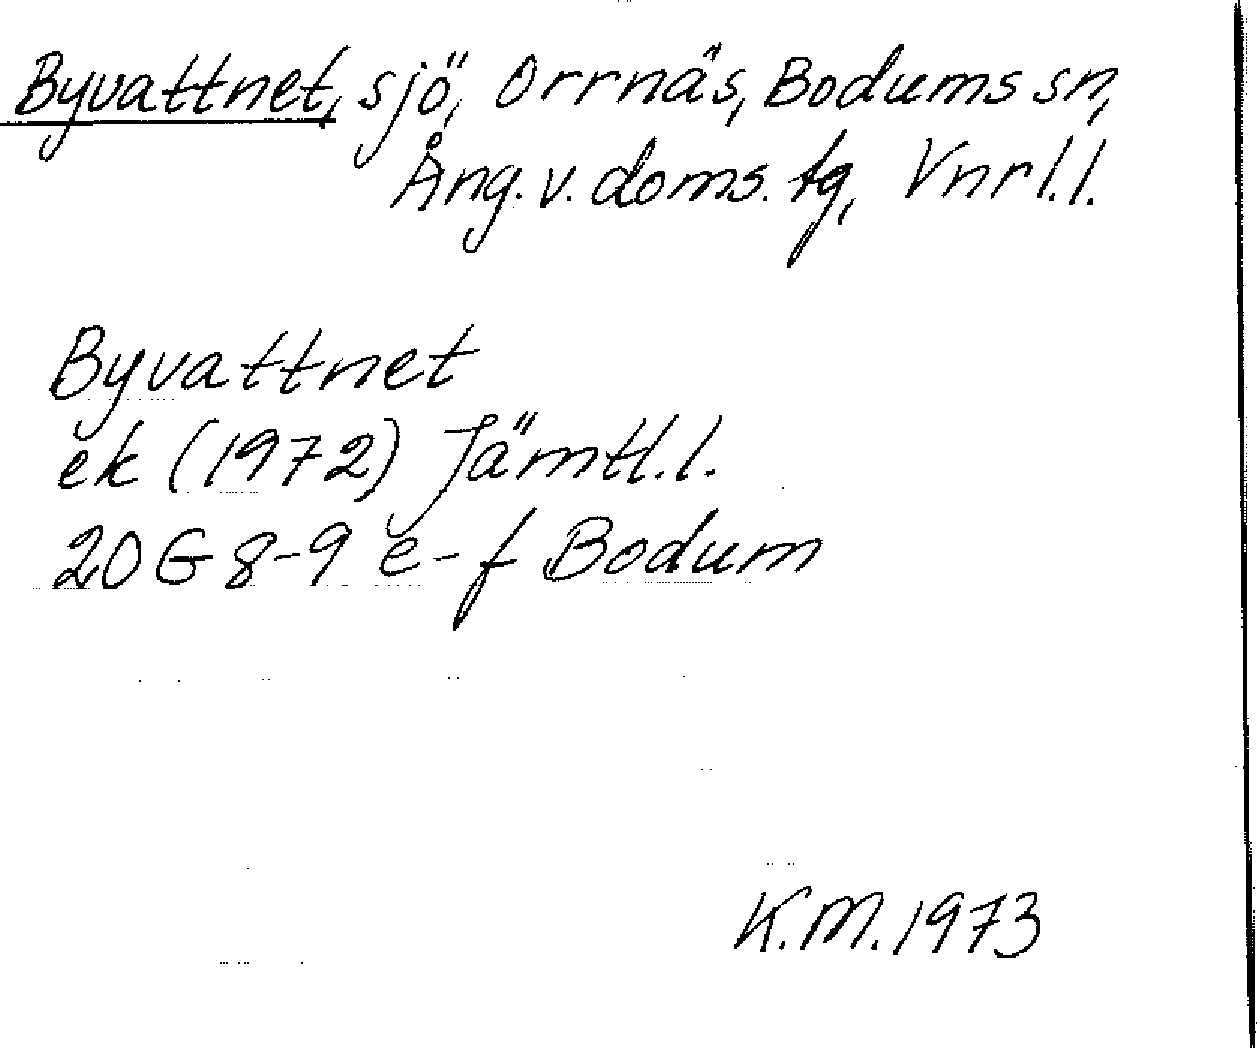 Byvattnet, sjö, Orrnäs, Bodums sn,
Ång. v. doms. tg, Vnrl.l.
Byvattnet
ek (1972) Jämtl.l.
20G 8-9 e-f Bodum
K.M. 1973